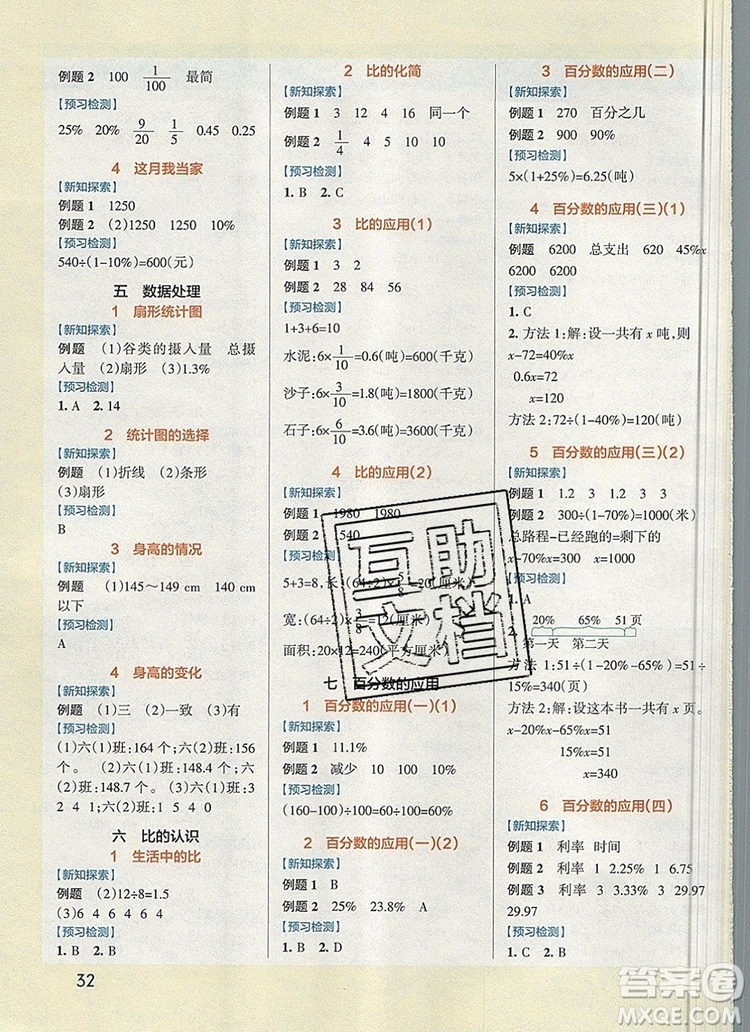 例题 2 100 1/100 最简
【预习检测】
25% 20% 9/20 1/5 0.45 0.25
4 这月我当家
【新知探索】
例题 1 1250
例题 2 (2)1250 1250 10%
【预习检测】
540÷(1-10%)=600(元)
五 数据处理
1 扇形统计图
【新知探索】
例题 (1)谷类的摄人量 总摄
人量 (2)扇形 (3)1.3%
【预习检测】
1. A 2. 14
2 统计图的选择
例题 (1)折线 (2)条形
(3)扇形
【预习检测】
B
3 身高的情况
【新知探索】
例题 (1)145～149 cm 140 cm
以下
【预习检测】
A
4 身高的变化
【新知探索】
例题 (1)三 (2)一致 (3)有
【预习检测】
(1)六(1)班:164 个;六(2)班:156
个。 (2)六(1)班:148.4 个;六(2)
班:148.7 个。 (3)六(1)班:3
2 4 1;六(2)班:1 5 4 0
六 比的认识
1 生活中的比
【新知探索】
例题 (2)12÷8=1.5
(3)6 4 6 4 6 4
【预习检测】
1. B 2. B
32
2 比的化简
【新知探索】
例题 1 3 12 4 16 同一个
例题 2 1/4 4 5 10 10
【预习检测】
1. B 2. C
3 比的应用(1)
【新知探索】
例题 1 3 2
例题 2 28 84 56
【预习检测】
1+3+6=10
水泥:6×1/10=0.6(吨)=600(千克)
沙子:6×3/10=1.8(吨)=1800(千克)
石子:6×6/10=3.6(吨)=3600(千克)
4 比的应用(2)
【新知探索】
例题 1 1980 1980
例题 2 540
【预习检测】
5+3=8,长:(64÷2)×5/8=20(厘米)
宽:(64÷2)×3/8=12(厘米)
面积:20×12=240(平方厘米)
七 百分数的应用
1 百分数的应用(一)(1)
【新知探索】
例题 1 11.1%
例题 2 减少 10 100 10%
【预习检测】
(160-100)÷100=60÷100=60%
2 百分数的应用(一)(2)
【新知探索】
例题 1 B
例题 2 25% 23.8% A
【预习检测】
1. B 2. D
3 百分数的应用(二)
【新知探索】
例题 1 270 百分之几
例题 2 900 90%
【预习检测】
5×(1+25%)=6.25(吨)
4 百分数的应用(三)(1)
【新知探索】
例题 6200 总支出 620 45%x
6200 6200
【预习检测】
1. C
2. 方法 1:解:设一共有 x 吨,则
x-72=40%x
0.6x=72
x=120
方法 2:72÷(1-40%)=120(吨)
5 百分数的应用(三)(2)
【新知探索】
例题 1 1.2 3 1.2 3
例题 2 300÷(1-70%)=1000(米)
总路程-已经跑的=剩下的
x-70%x=300 x=1000
【预习检测】
1. A
2. 20% 65% 51 页
第一天 第二天
方法 1:51÷(1-20%-65%)=51÷
15%=340(页)
方法 2:解:设这本书一共有 x 页。
x-20%x-65%x=51
15%x=51
x=340
6 百分数的应用(四)
【新知探索】
例题 1 利率 时间
例题 2 利率 1 2.25% 1 6.75
例题 3 利率 3 3.33% 3 29.97
29.97
【预习检测】
1. C 2. B
互助
文档
答案圈
MXQE.COM